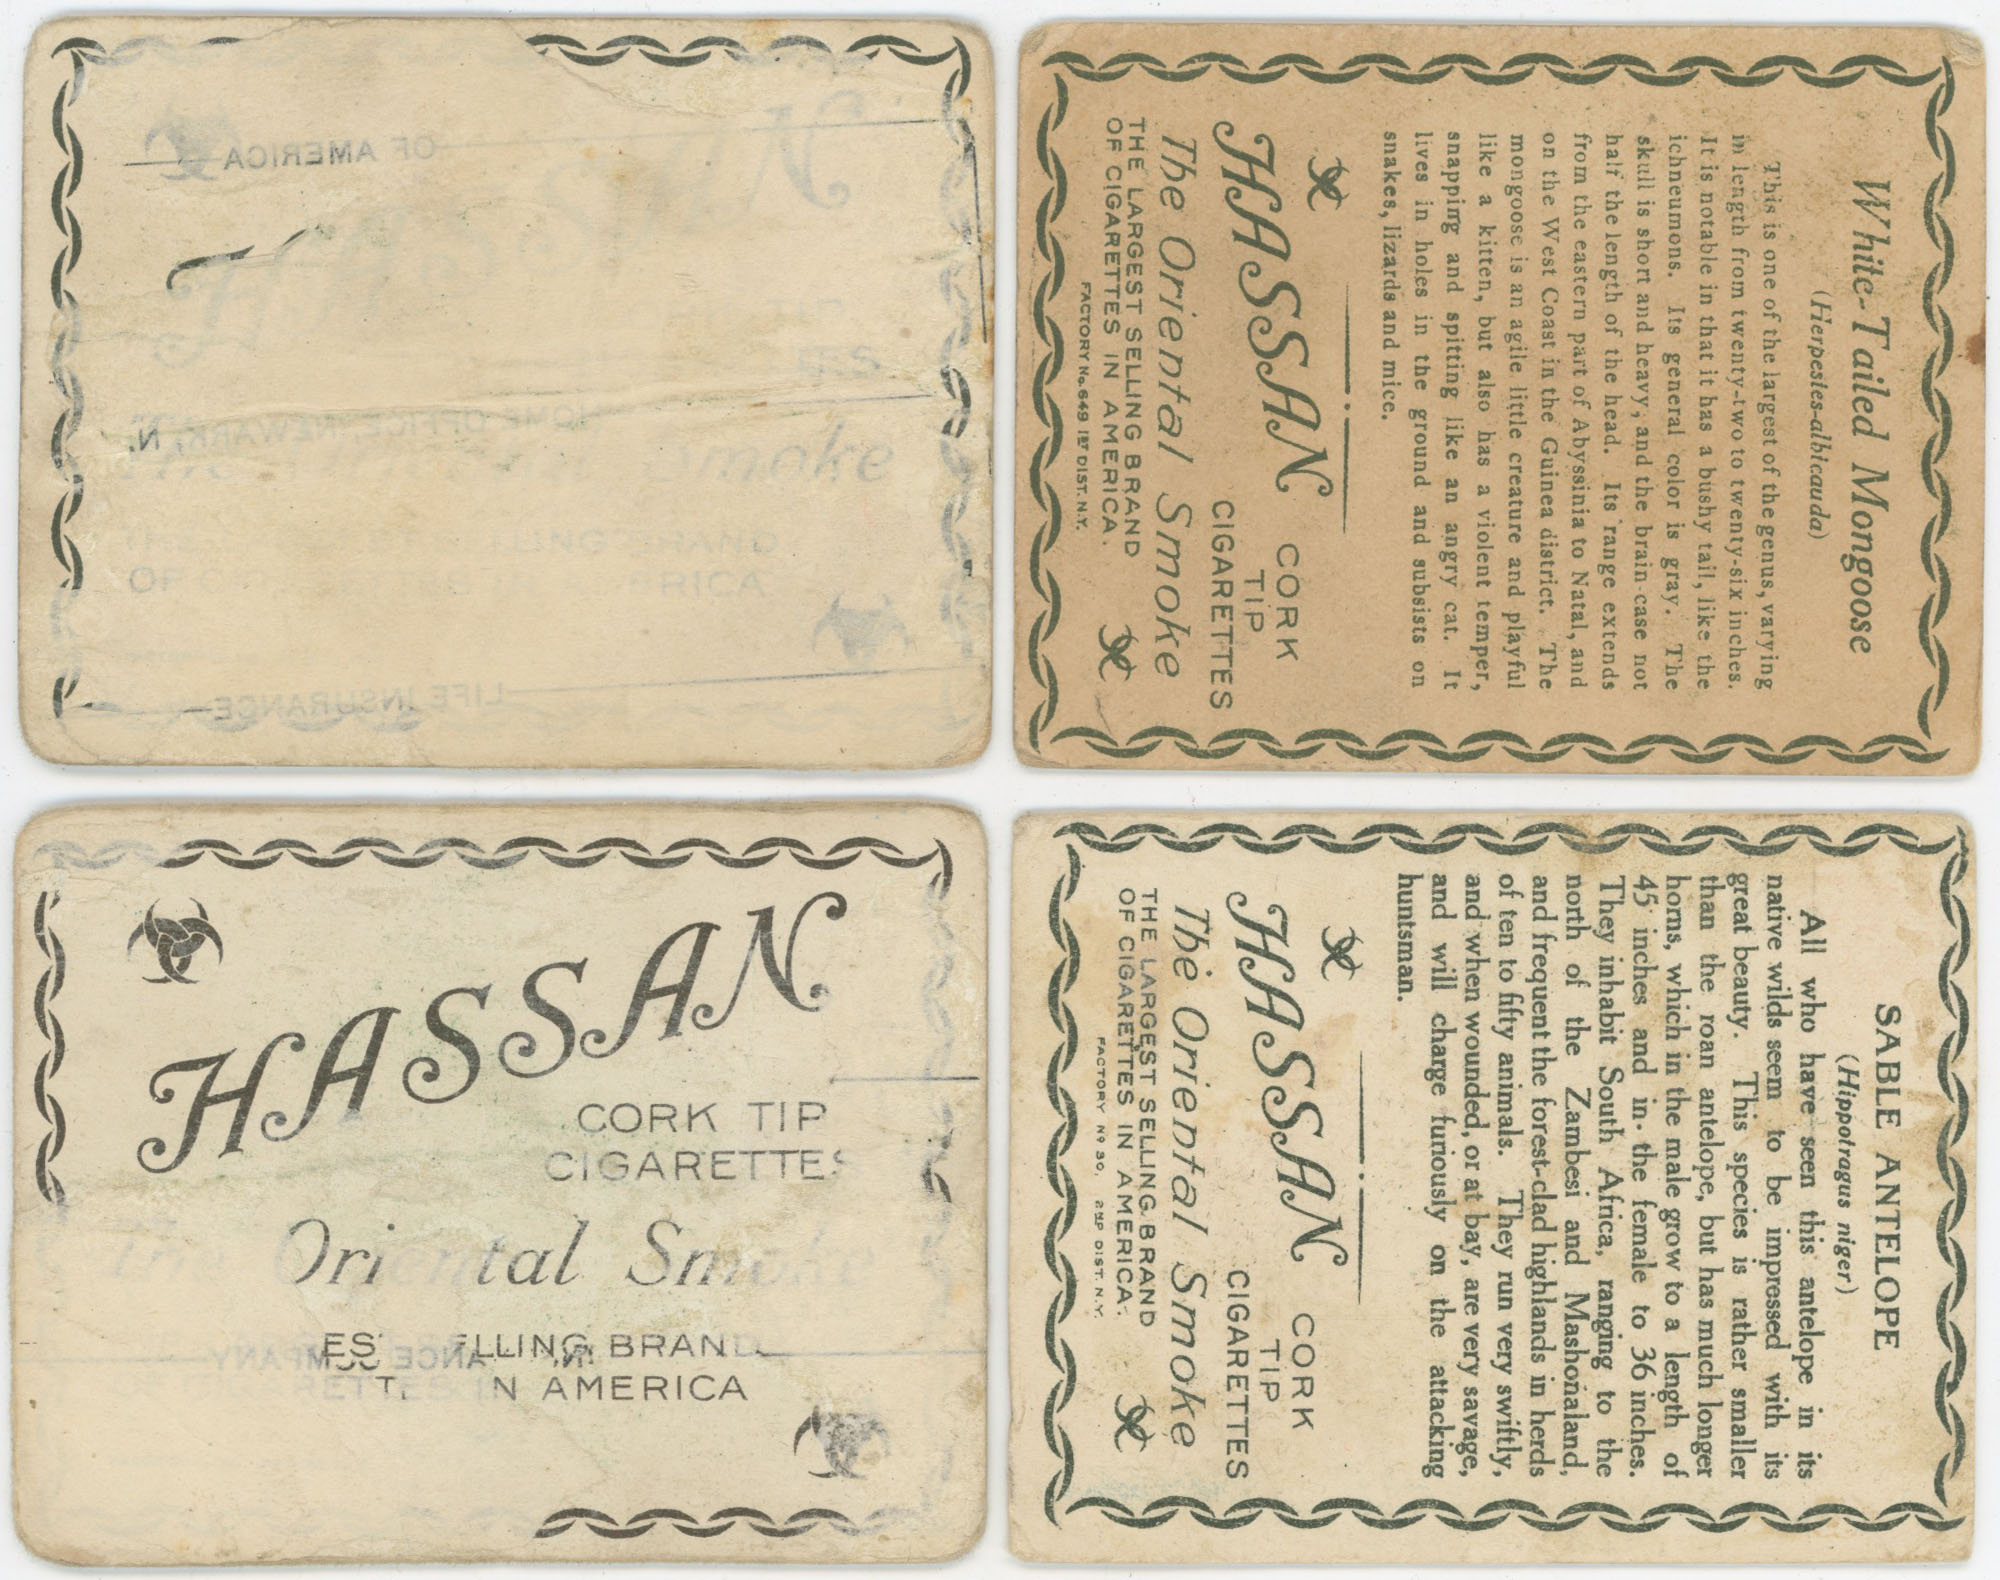 OF AMERICA
moke
HOME OFFICE, NEWARK, N.
OF
LIFE INSURANCE
White-Tailed Mongoose
(Herpestes-albicauda)
This is one of the largest of the genus, varying
in length from twenty-two to twenty-six inches.
It is notable in that it has a bushy tail, like the
ichneumons. Its general color is gray. The
skull is short and heavy, and the brain-case not
half the length of the head. Its range extends
from the eastern part of Abyssinia to Natal, and
on the West Coast in the Guinea district. The
mongoose is an agile little creature and playful
like a kitten, but also has a violent temper,
snapping and spitting like an angry cat. It
lives in holes in the ground and subsists on
snakes, lizards and mice.
HASSAN
CORK
TIP
CIGARETTES
The Oriental Smoke
THE LARGEST SELLING BRAND
OF CIGARETTES IN AMERICA.
FACTORY No. 649 1ST DIST. N.Y.
HASSAN
CORK TIP
CIGARETTES
Oriental Smok
EST SELLING BRAND
IN AMERICA
SABLE ANTELOPE
(Hippotragus niger)
All who have seen this antelope in its
native wilds seem to be impressed with its
great beauty. This species is rather smaller
than the roan antelope, but has much longer
horns, which in the male grow to a length of
45 inches and in the female to 36 inches.
They inhabit South Africa, ranging to the
north of the Zambesi and Mashonaland,
and frequent the forest-clad highlands in herds
of ten to fifty animals. They run very swiftly,
and when wounded, or at bay, are very savage,
and will charge furiously on the attacking
huntsman.
HASSAN
CORK
TIP
CIGARETTES
The Oriental Smoke
THE LARGEST SELLING BRAND
OF CIGARETTES IN AMERICA.
FACTORY Nº 30. 2ND DIST. N.Y.